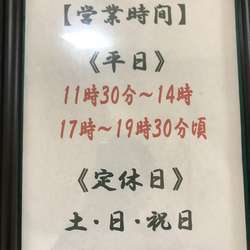 【営業時間】
《平日》
11時30分～14時
17時～19時30分頃
《定休日》
土・日・祝日